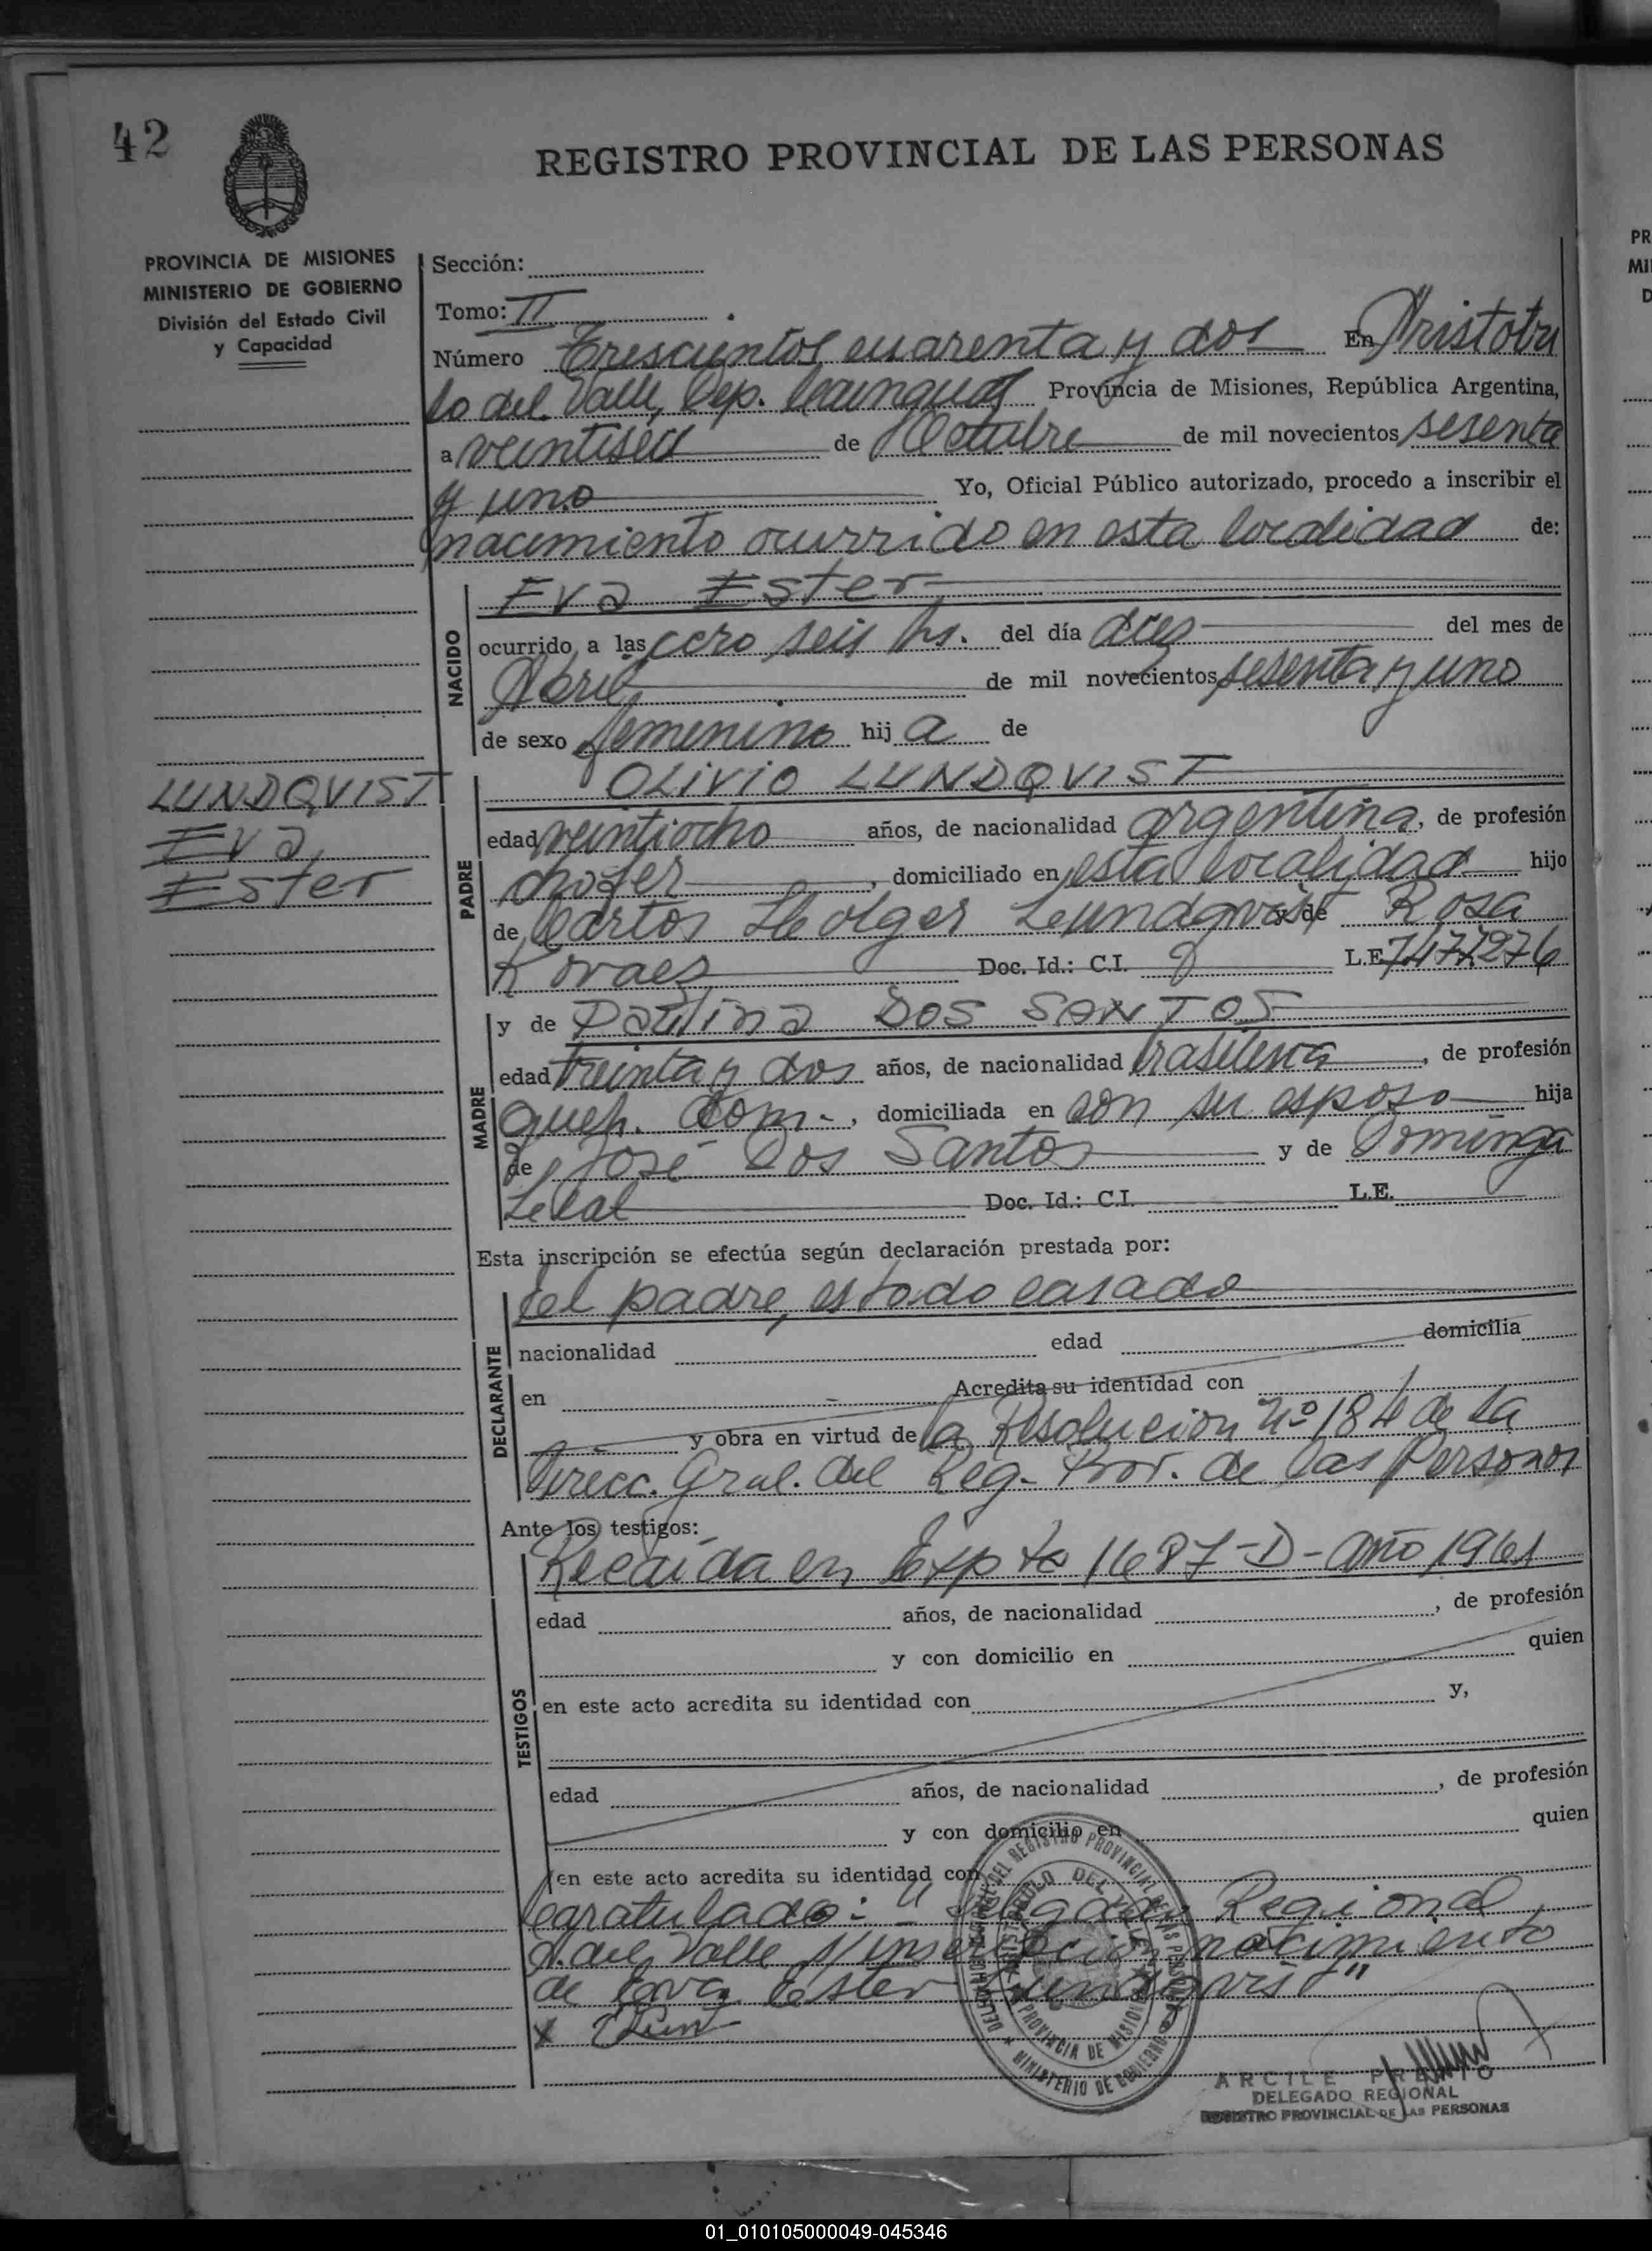 42
REGISTRO PROVINCIAL DE LAS PERSONAS
PROVINCIA DE MISIONES
MINISTERIO DE GOBIERNO
División del Estado Civil
y Capacidad
Sección:
Tomo: II
Número Trescientos cuarenta y dos En Aristobu
lo del Valle, Dep. Cainguas Provincia de Misiones, República Argentina,
a veintiseis de Octubre de mil novecientos sesenta
y uno Yo, Oficial Público autorizado, procedo a inscribir el
nacimiento ocurrido en esta localidad de:
NACIDO
Eva Ester
ocurrido a las cero seis hs. del día diez del mes de
Abril de mil novecientos sesenta y uno
de sexo femenino hij a de
LUNDQVIST
Eva
Ester
PADRE
OLIVIO LUNDQVIST
edad veintiocho años, de nacionalidad argentina, de profesión
chofer, domiciliado en esta localidad hijo
de Carlos Holger Lundqvist y de Rosa
Kovaes Doc. Id.: C.I. L.E. 7472976
MADRE
y de Paulina DOS SANTOS
edad treinta y dos años, de nacionalidad brasilera, de profesión
queh. dom., domiciliada en con su esposo hija
de José Dos Santos y de Dominga
Leal Doc. Id.: C.I. L.E.
Esta inscripción se efectúa según declaración prestada por:
DECLARANTE
el padre, estado casado
nacionalidad edad domicilia
en Acredita su identidad con
y obra en virtud de la Resolucion nº 184 de la
Direcc. Gral. del Reg. Prov. de las Personas
Ante los testigos:
Recaida en Expte 1687-D-año 1961
TESTIGOS
edad años, de nacionalidad , de profesión
y con domicilio en quien
en este acto acredita su identidad con y,
edad años, de nacionalidad , de profesión
y con domicilio en quien
en este acto acredita su identidad con
Caratulado: " Delegado Regional
A. del Valle s/inscripcion nacimiento
de Eva Ester Lundqvist"
MINISTERIO DE GOBIERNO
PROVINCIA DE MISIONES
DELEGADO REGIONAL
REGISTRO PROVINCIAL DE LAS PERSONAS
01_010105000049-045346